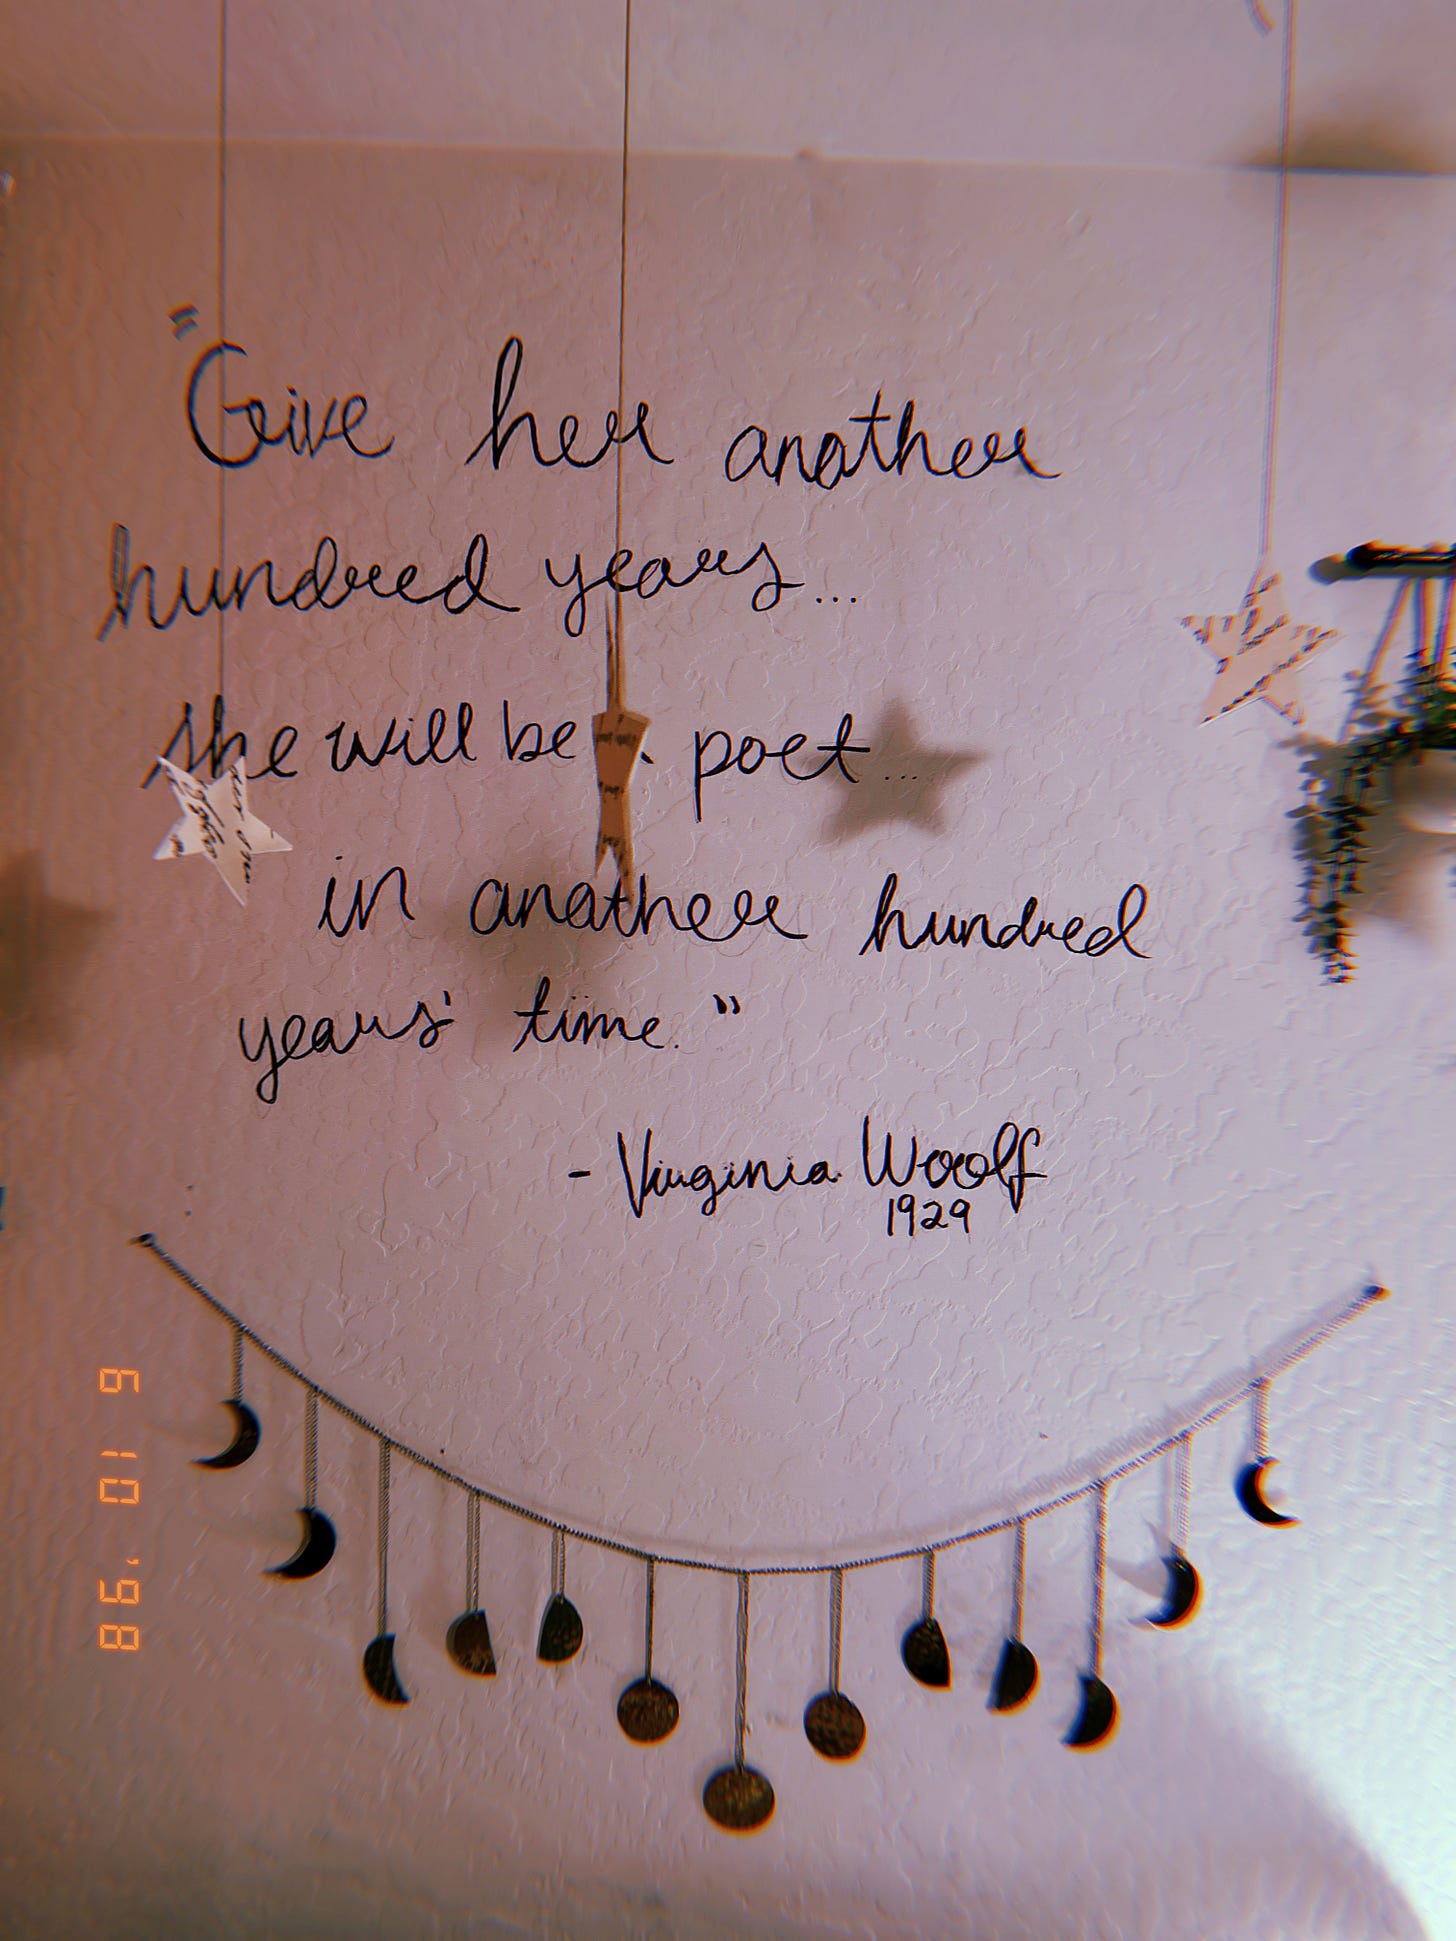 "Give her another
hundred years...
she will be a poet...
in another hundred
years' time."
- Virginia Woolf
1929
6 10 '98